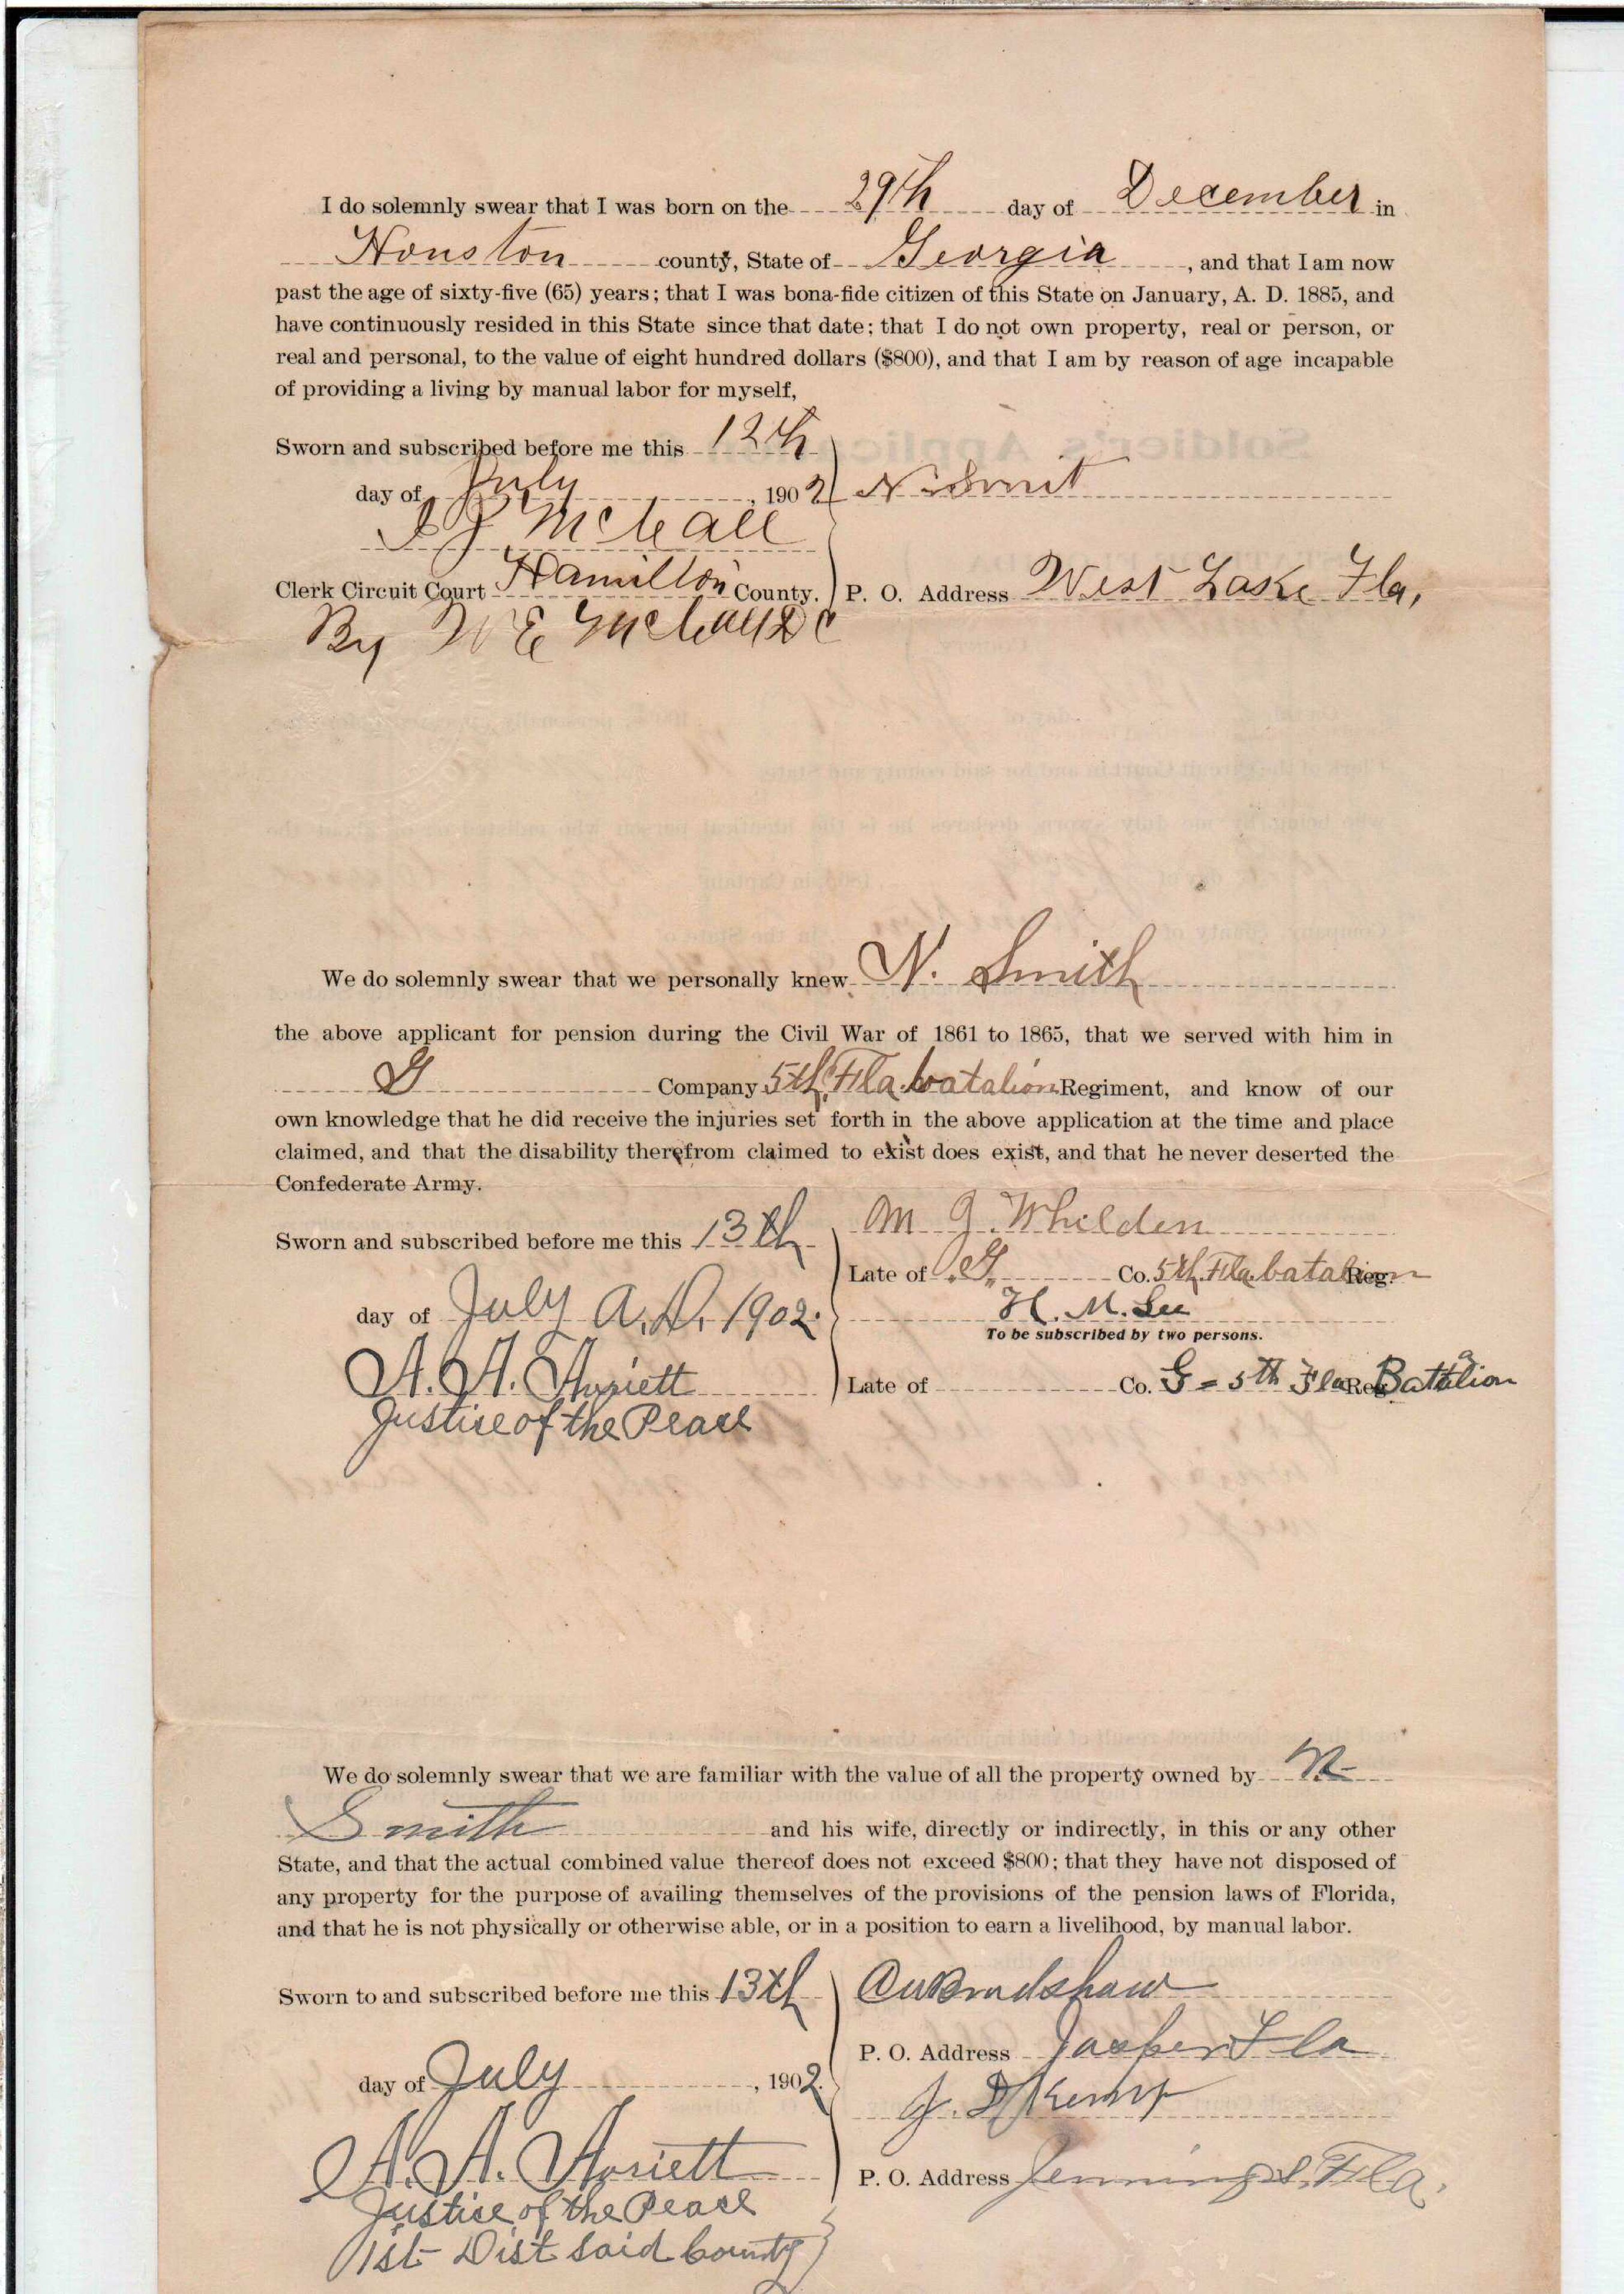 I do solemnly swear that I was born on the 29th day of December in
Houston county, State of Georgia, and that I am now
past the age of sixty-five (65) years; that I was bona-fide citizen of this State on January, A. D. 1885, and
have continuously resided in this State since that date; that I do not own property, real or person, or
real and personal, to the value of eight hundred dollars ($800), and that I am by reason of age incapable
of providing a living by manual labor for myself,
Soldier's Applic
Sworn and subscribed before me this 12th
day of July, 1902 N Smit
McCall
Clerk Circuit Court Hamilton County. P. O. Address West Lake Fla,
By W E McCall DC
We do solemnly swear that we personally knew N. Smith
the above applicant for pension during the Civil War of 1861 to 1865, that we served with him in
G Company 5th Fla. batalion Regiment, and know of our
own knowledge that he did receive the injuries set forth in the above application at the time and place
claimed, and that the disability therefrom claimed to exist does exist, and that he never deserted the
Confederate Army.
Sworn and subscribed before me this 13th M J. Whilden
Late of G Co. 5th. Fla. batalion Reg.
day of July A.D. 1902. H. M. Lee
To be subscribed by two persons.
A. A.
Late of Co. G = 5th Fla Reg Batalion
Justice of the Peace
We do solemnly swear that we are familiar with the value of all the property owned by N
Smith and his wife, directly or indirectly, in this or any other
State, and that the actual combined value thereof does not exceed $800; that they have not disposed of
any property for the purpose of availing themselves of the provisions of the pension laws of Florida,
and that he is not physically or otherwise able, or in a position to earn a livelihood, by manual labor.
Sworn to and subscribed before me this 13th Bradshaw
P. O. Address Jasper Fla
day of July, 1902. J. D. Kemp
A. A.
P. O. Address Jennings, Fla.
Justice of the Peace
1st Dist said County